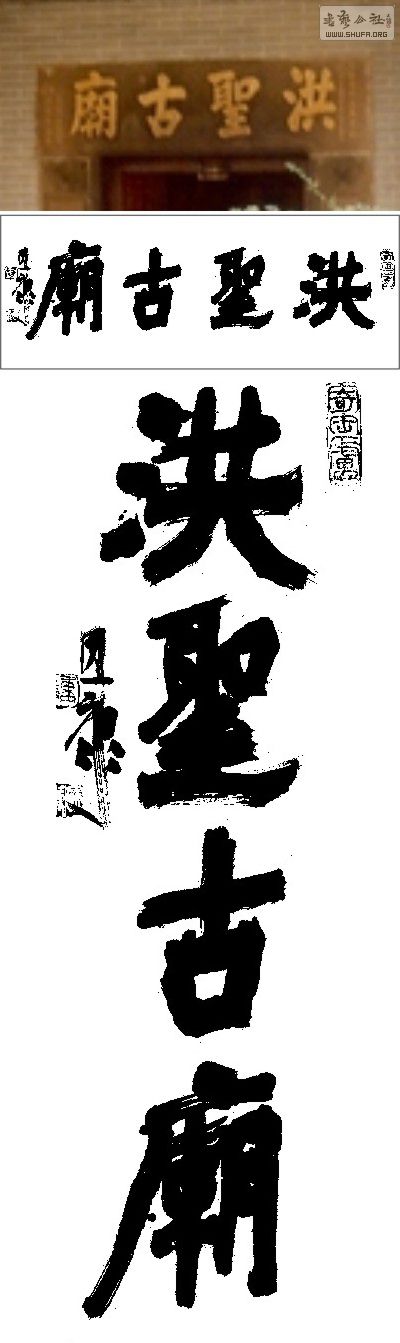 書藝公社
WWW.SHUFA.ORG
洪聖古廟
洪聖古廟
洪聖古廟